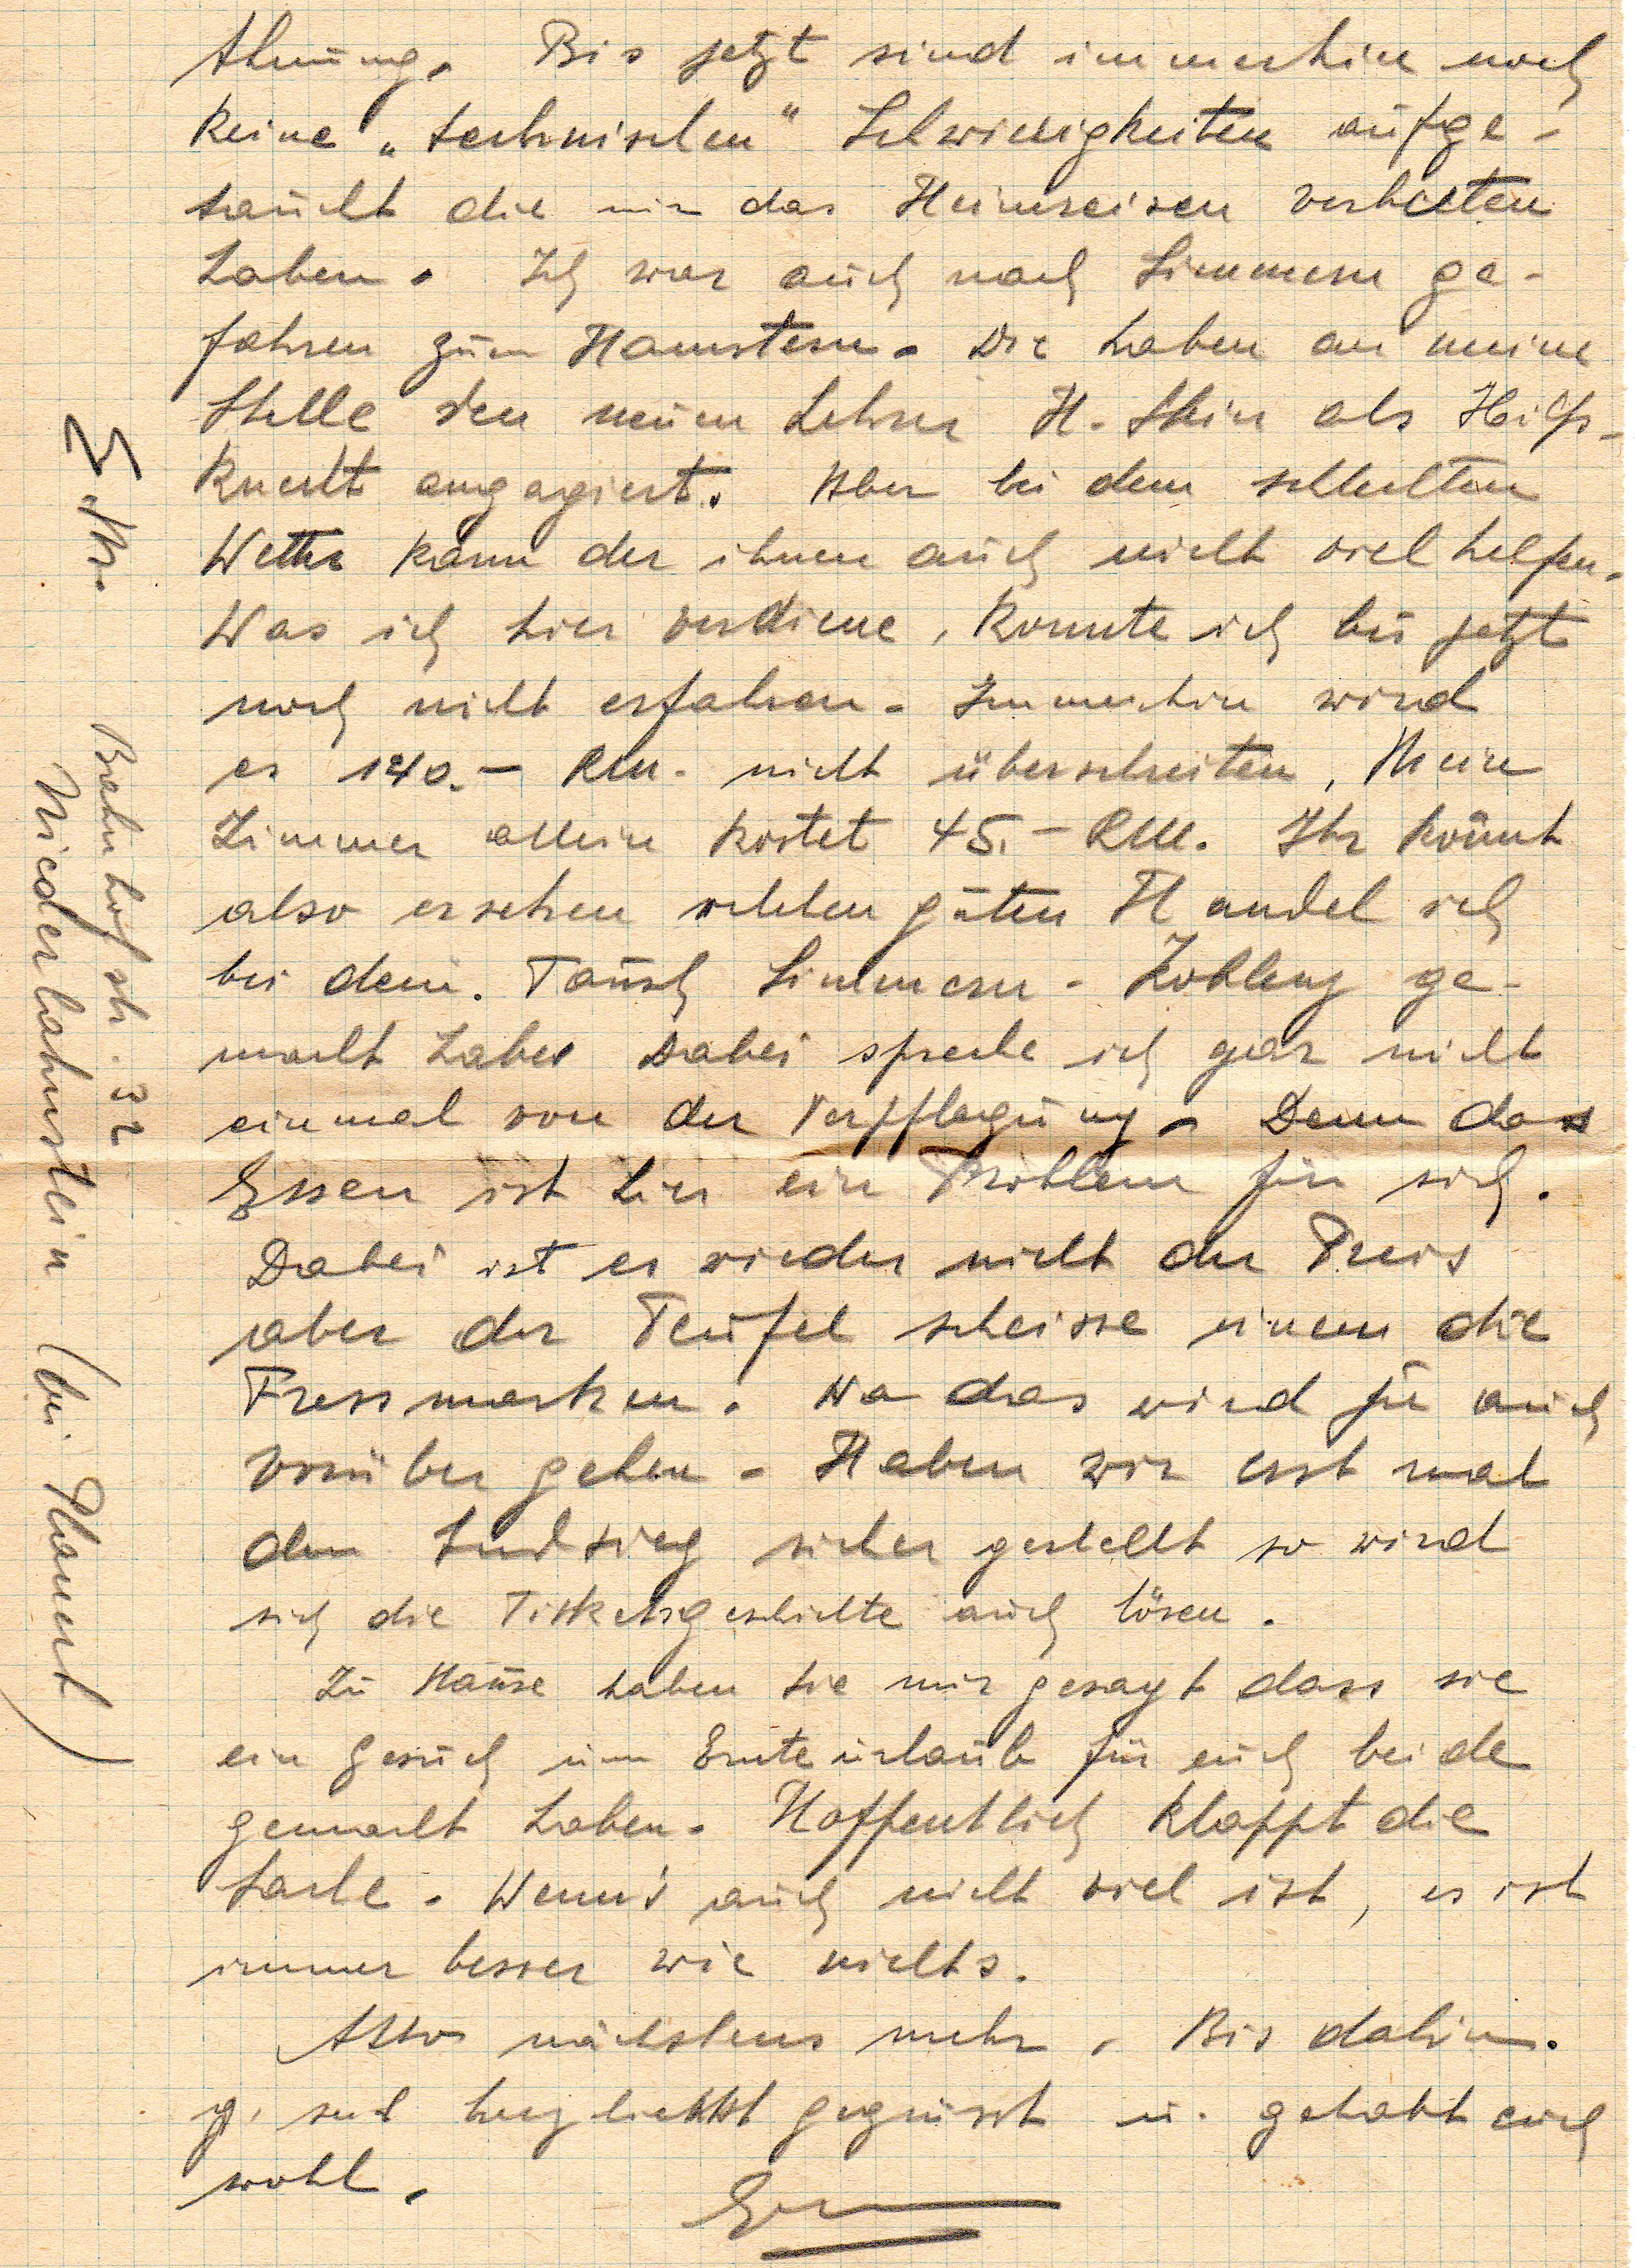 Ahnung. Bis jetzt sind immerhin noch
keine „technischen" Schwierigkeiten aufge-
taucht die mir das Heimreisen verboten
haben. Ich war auch nach Simmern ge-
fahren zum Hamstern. Die haben an meine
Stelle den neuen Lehrer H. Stein als Hilfs-
knecht engagiert. Aber bei dem schlechten
Wetter kann der ihnen auch nicht viel helfen.
Was ich hier verdiene, konnte ich bis jetzt
noch nicht erfahren. Immerhin wird
es 140.– RM. nicht überschreiten, Mein
Zimmer allein kostet 45.– RM. Ihr könnt
also ersehen welchen guten Handel ich
bei dem Tausch Simmern - Koblenz ge-
macht habe Dabei spreche ich gar nicht
einmal von der Verpflegung. Denn das
Essen ist hier ein Problem für sich.
Dabei ist es wieder nicht der Preis
aber der Teufel scheisse einem die
Fressmarken. Na das wird ja auch
vorüber gehen. Haben wir erst mal
den Endsieg sicher gestellt so wird
sich die geschichte auch lösen.
Zu Hause haben sie mir gesagt dass sie
ein Gesuch um Ernteurlaub für euch beide
gemacht haben. Hoffentlich klappt die
Sache. Wenn's auch nicht viel ist, es ist
immer besser wie nichts.
Also nächstens mehr. Bis dahin.
seid herzlichst gegrüsst u. gehabt euch
wohl.
Bahnhofstr. 32
Niederlahnstein (bei)